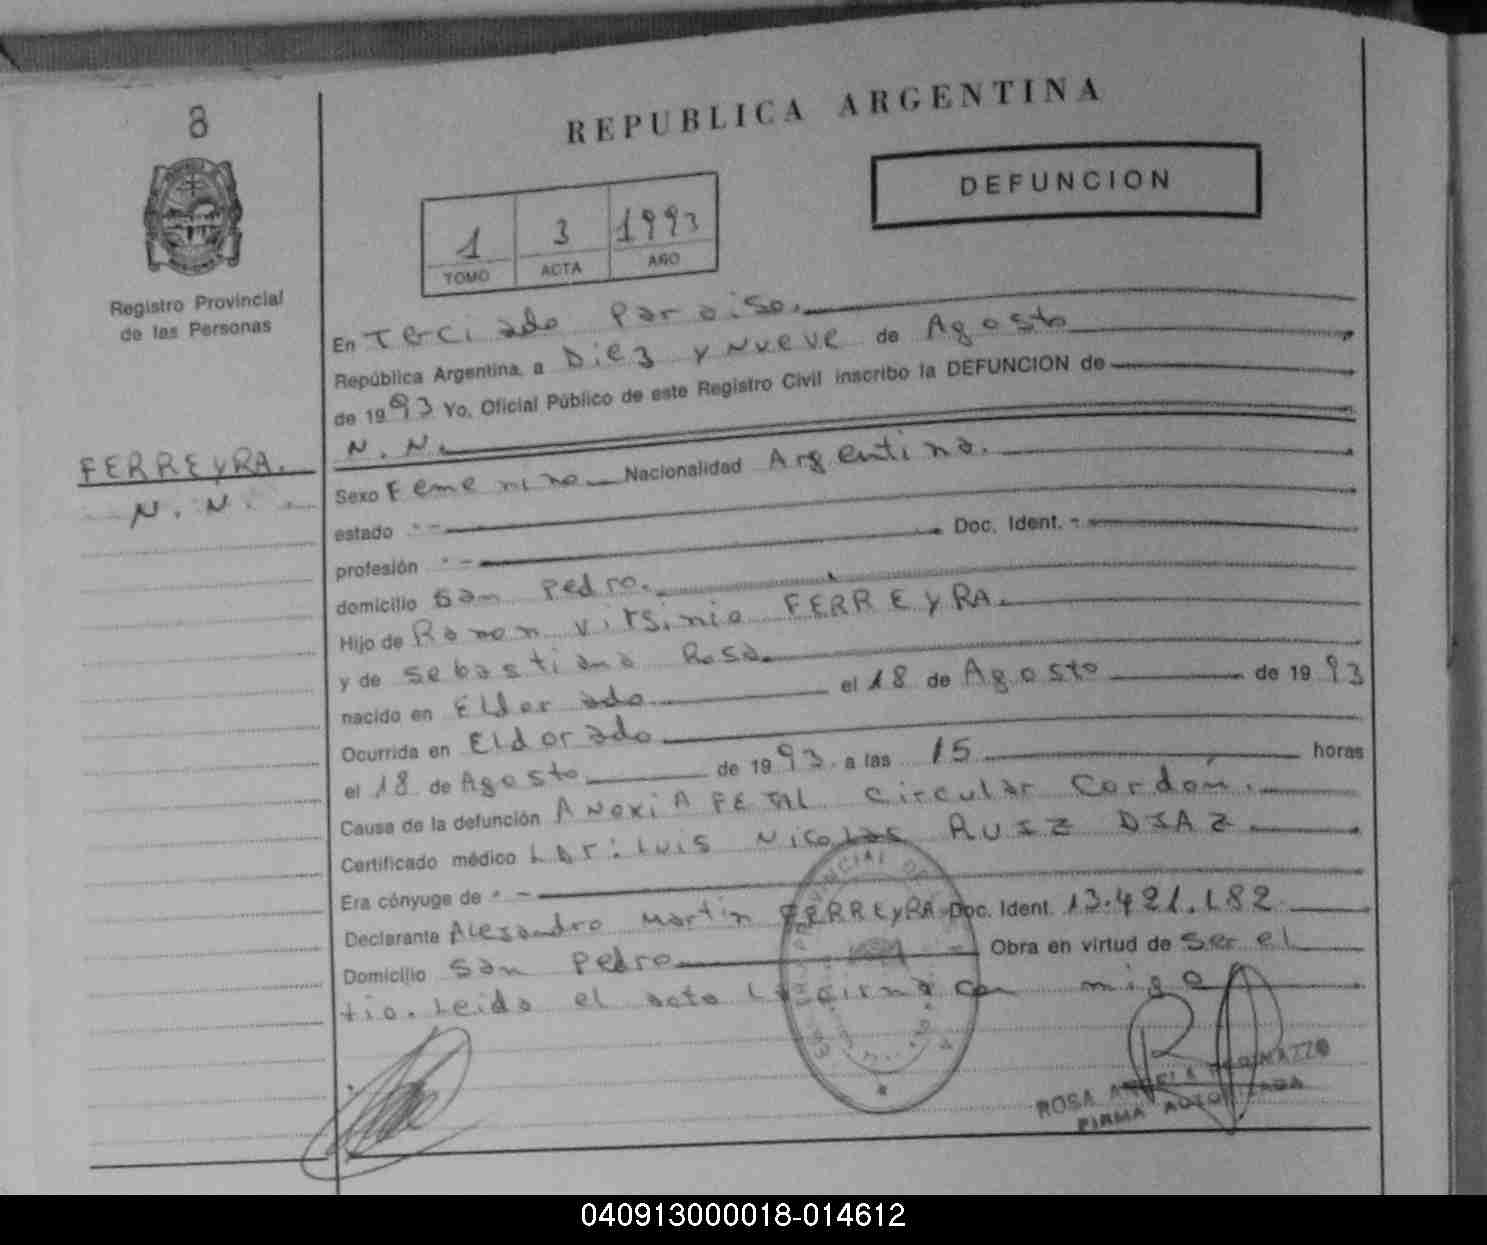 8
REPUBLICA ARGENTINA
DEFUNCION
1 3 1993
TOMO ACTA AÑO
Registro Provincial
de las Personas
FERREYRA.
N. N.
En Terciado Paraiso.
República Argentina, a Diez y Nueve de Agosto
de 1993 Yo, Oficial Público de este Registro Civil inscribo la DEFUNCION de
N. N.
Sexo Femenino Nacionalidad Argentina.
estado
profesión Doc. Ident.
domicilio San Pedro.
Hijo de Ramon Virginio FERREYRA.
y de Sebastiana Rosa.
nacido en Eldorado el 18 de Agosto de 1993
Ocurrida en Eldorado
el 18 de Agosto de 1993 a las 15 horas
Causa de la defunción ANOXIA FETAL Circular Cordón.
Certificado médico Dr: Luis Nicolas RUIZ DIAZ
Era cónyuge de
Declarante Alejandro Martin FERREYRA Doc. Ident. 13.421.182
Domicilio San Pedro Obra en virtud de Ser el
tio. Leida el acta La firma con migo
ROSA ANGELA
FIRMA AUTORIZADA
040913000018-014612